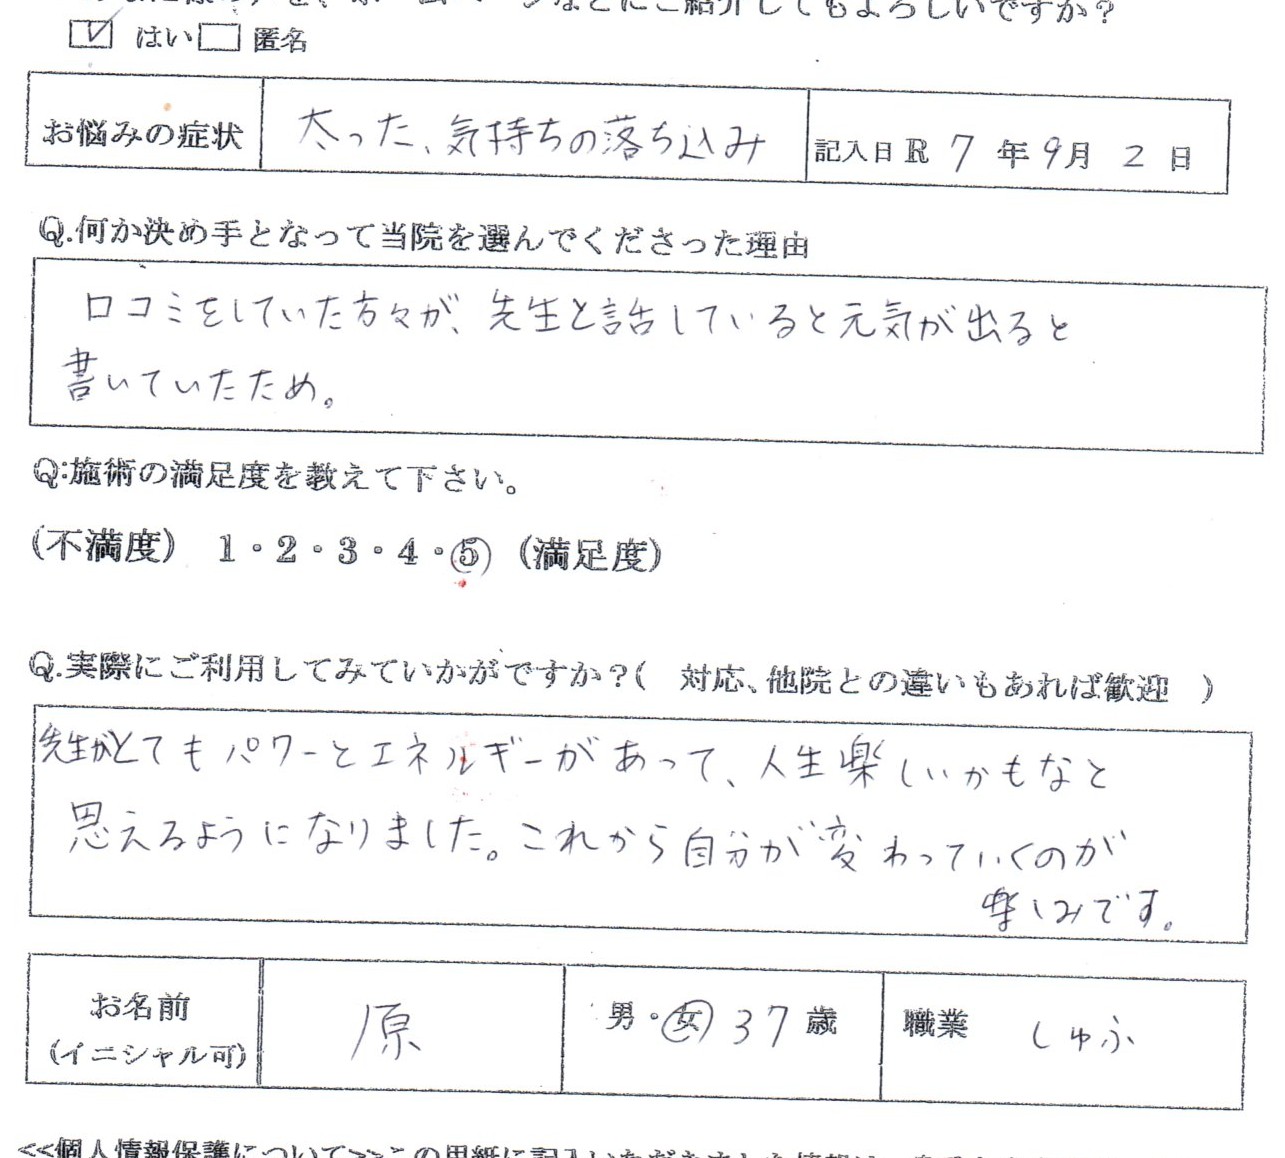 ホームページなどにご紹介してもよろしいですか？
はい 匿名
お悩みの症状 太った、気持ちの落ち込み 記入日 R 7 年 9月 2 日
Q.何か決め手となって当院を選んでくださった理由
口コミをしていた方々が、先生と話していると元気が出ると
書いていたため。
Q:施術の満足度を教えて下さい。
(不満度) 1・2・3・4・5 (満足度)
Q.実際にご利用してみていかがですか？( 対応、他院との違いもあれば歓迎 )
先生がとてもパワーとエネルギーがあって、人生楽しいかもなと
思えるようになりました。これから自分が変わっていくのが
楽しみです。
お名前 原 男・女 37 歳 職業 しゅふ
(イニシャル可)
<<個人情報保護について>>この用紙に記入いただきました情報は、